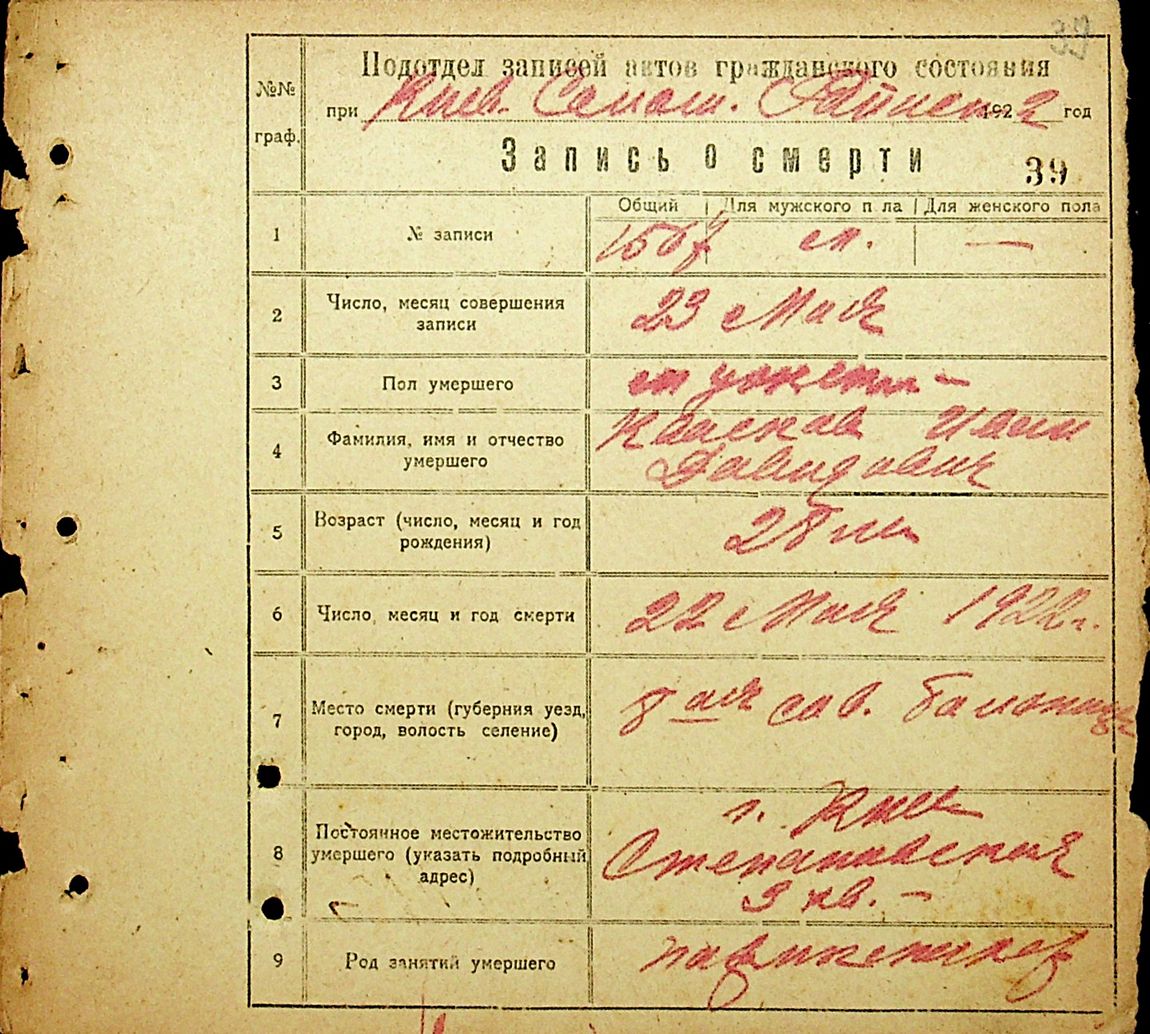 39
Подотдел записей актов гражданского состояния
№№ граф.
при Киев. 1922 год
Запись о смерти 39
Общий Для мужского пола Для женского пола
1 № записи 1567 м. —
2 Число, месяц совершения записи 23 Мая
3 Пол умершего мужской —
4 Фамилия, имя и отчество умершего
Давидович
5 Возраст (число, месяц и год рождения) 28 лет
6 Число, месяц и год смерти 22 Мая 1922 г.
7 Место смерти (губерния уезд, город, волость селение) 8 ая сов. больница
8 Постоянное местожительство умершего (указать подробный адрес) г. Киев
Степановская
3 кв. —
9 Род занятий умершего парикмахер